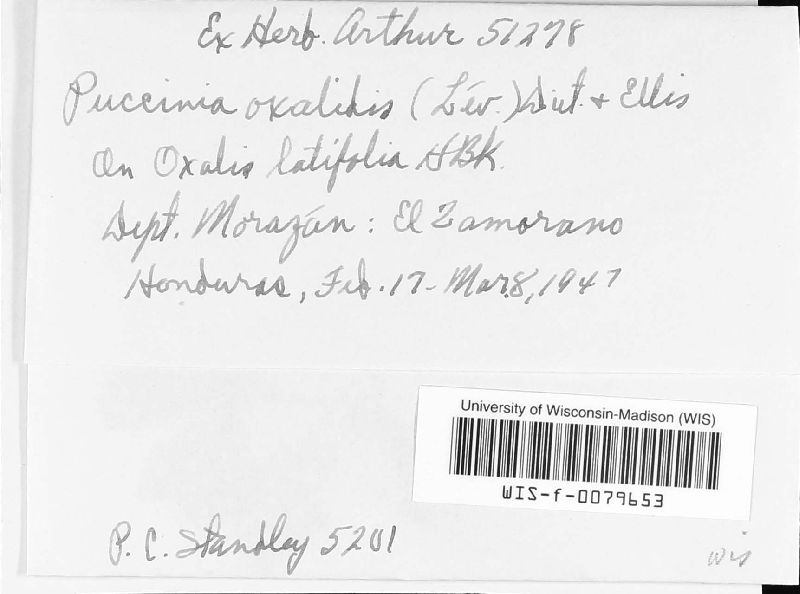 Ex Herb. Arthur 51278
Puccinia oxalidis (Lév.) Diet. + Ellis
On Oxalis latifolia HBK.
Dept. Morazán: El Zamorano
Honduras, Feb. 17-Mar. 8, 1947
University of Wisconsin-Madison (WIS)
WIS-f-0079653
P. C. Standley 5201
wis